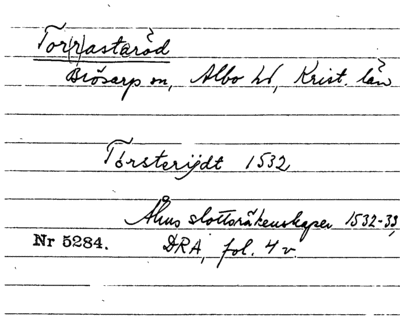 Tor(r)astaröd
Brösarp sn, Albo hd, Krist. län
Torsterijdt 1532
Åhus slottsräkenskaper 1532-33,
Nr 5284. DRA, fol. 4 v.